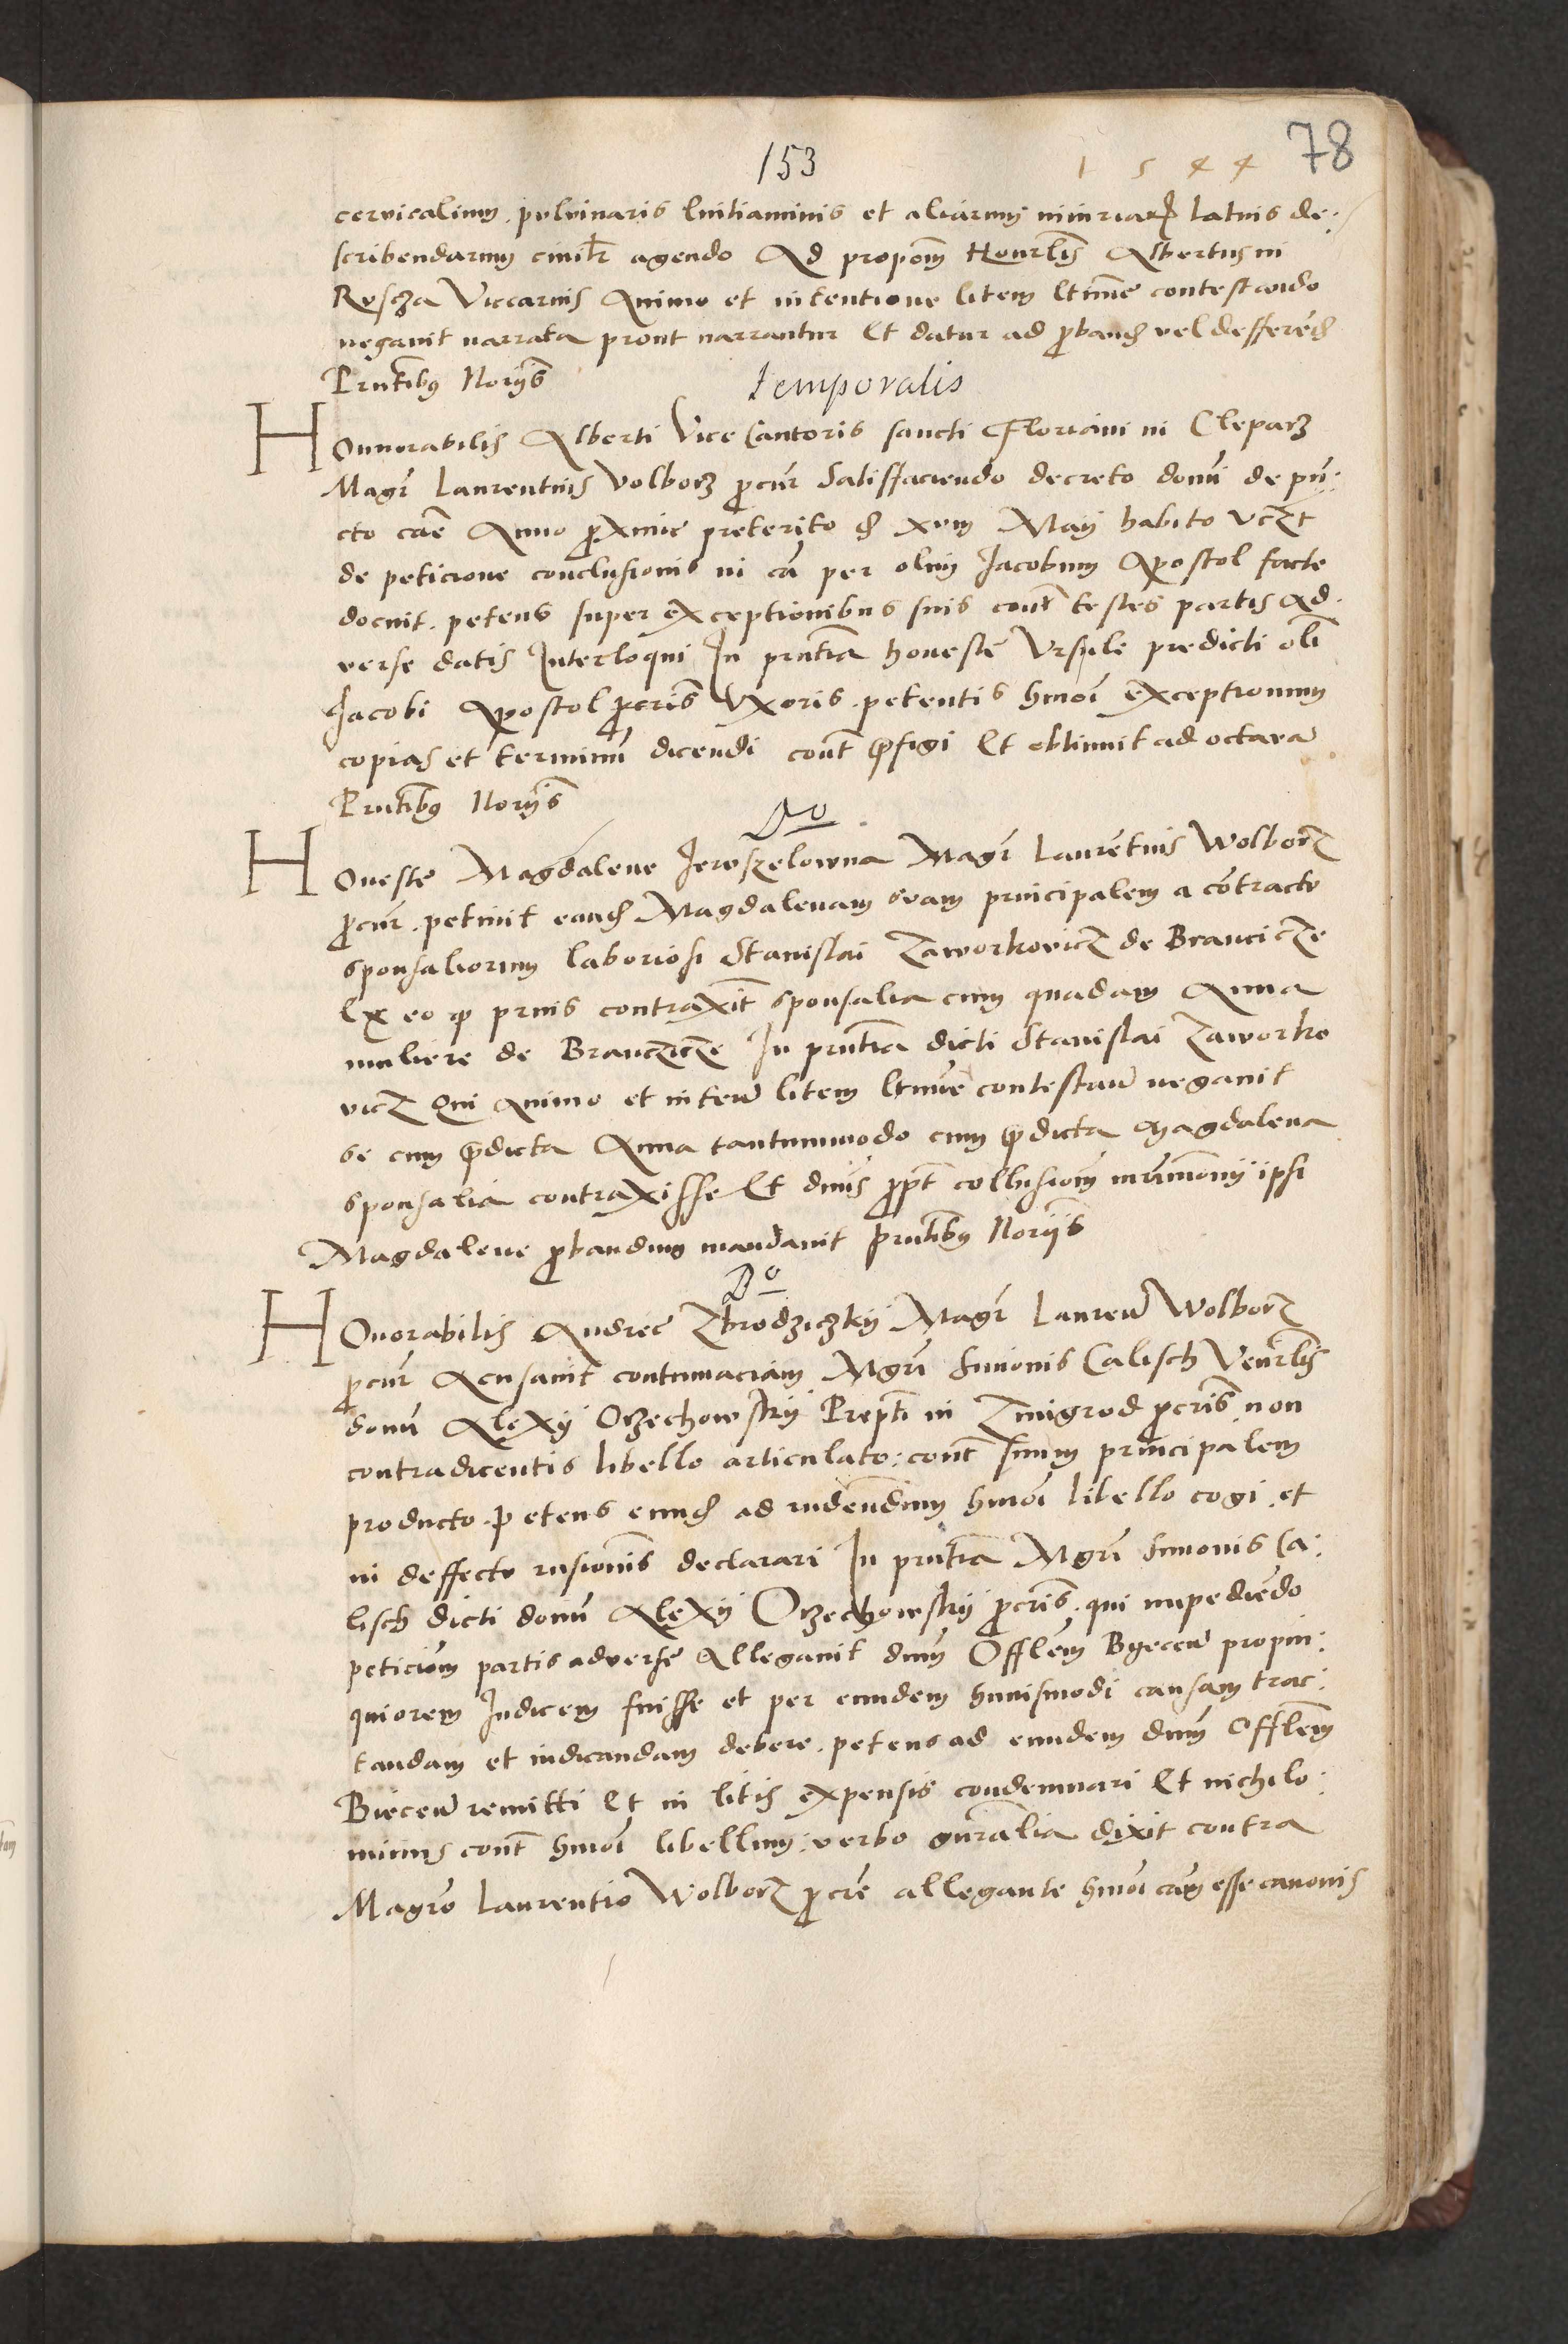 153
1 5 4 4 78
cervicalium. pulvinaris linthiaminis et aliarum iniuriarꝝ latius de:
scribendarum civilr̄ agendo Ad proponm̄ Honrlis̄ Albertus in
Rosza Viccarius Animo et intentione litem ltime contestando
negavit narrata prout narrantur Et datur ad ꝓband vel defferēd
Pntibꝫ Norijs
temporalis
Honnorabilis Alberti Vice Cantoris sancti Floriani in Cleparz
Magr̄ Laurentius Volborz ꝓcur̄ Satisffaciendo decreto domī de pū:
cto cāe Anno ꝓxime preterito d xvm Maij habito vczt
de peticione conclusionis in cā per olim Jacobum Apostol facte
docuit. petens super exceptionibus suis contr̄ testes partis ad:
verse datis Interloqui In pn̄tia honeste Ursule predicti olī
Jacobi Apostol ꝓcris̄ Uxoris. petentis hmōi exceptionum
copias et terminū dicendi cont̄ p̄figi Et obtinuit ad octava
Pntibꝫ Norijs
Do
Honeste Magdalene Jeroszelowna Magr̄ Laurētius Wolborz
ꝓcur̄. petivit eand Magdalenam suam principalem a cōtractu
sponsaliorum laboriosi Stanislai Zaworkowicz de Branicze
Ex eo ꝙ prius contraxit̄ sponsalia cum quadam Anna
muliere de Branczicze In pn̄tia dicti Stanislai Zaworko
vicz Qui Animo et inten̄ litem ltime contestan̄ negavit
se cum p̄dicta Anna tantummodo cum p̄dicta Magdalena
sponsalia contraxisse Et dnus̄ ꝓpt̄ collusionm̄ mrimonij ipsi
Magdalene ꝓbandum mandavit pntibꝫ Norijs
Do
Honorabilis Andree Zbrodziczkij Magr̄ Lauren̄ Wolborz
ꝓcur̄ Acusavit contumaciam Mgrī Simonis Calisch Venrlis̄
domī Alexij Orzechowskij Prepti in Zmigrod ꝓcris̄ non
contradicentis libello articulato: cont̄ suum principalem
producto. petens eund ad rndendum hmōi libello cogi. et
in deffectu rnsionis̄ declarari In pn̄tia Mgrī Simonis Ca:
lisch dicti domī Alexij Orzechowskij ꝓcris̄. qui impediēdo
peticionm̄ partis adverse Allegavit dnum̄ Offlem̄ Byecen̄ propin:
quiorem Judicem fuisse et per eundem huiusmodi causam trac:
tandam et iudicandam debere. petens ad eundem dnum̄ Offlem̄
Biecen̄ remitti Et in litis expensis condemnari Et nichilo:
minus cont̄ hmōi libellum: verbo gnralia dixit contra
Magro Laurentio Wolborz ꝓcre allegante hmōi cām esse canonis